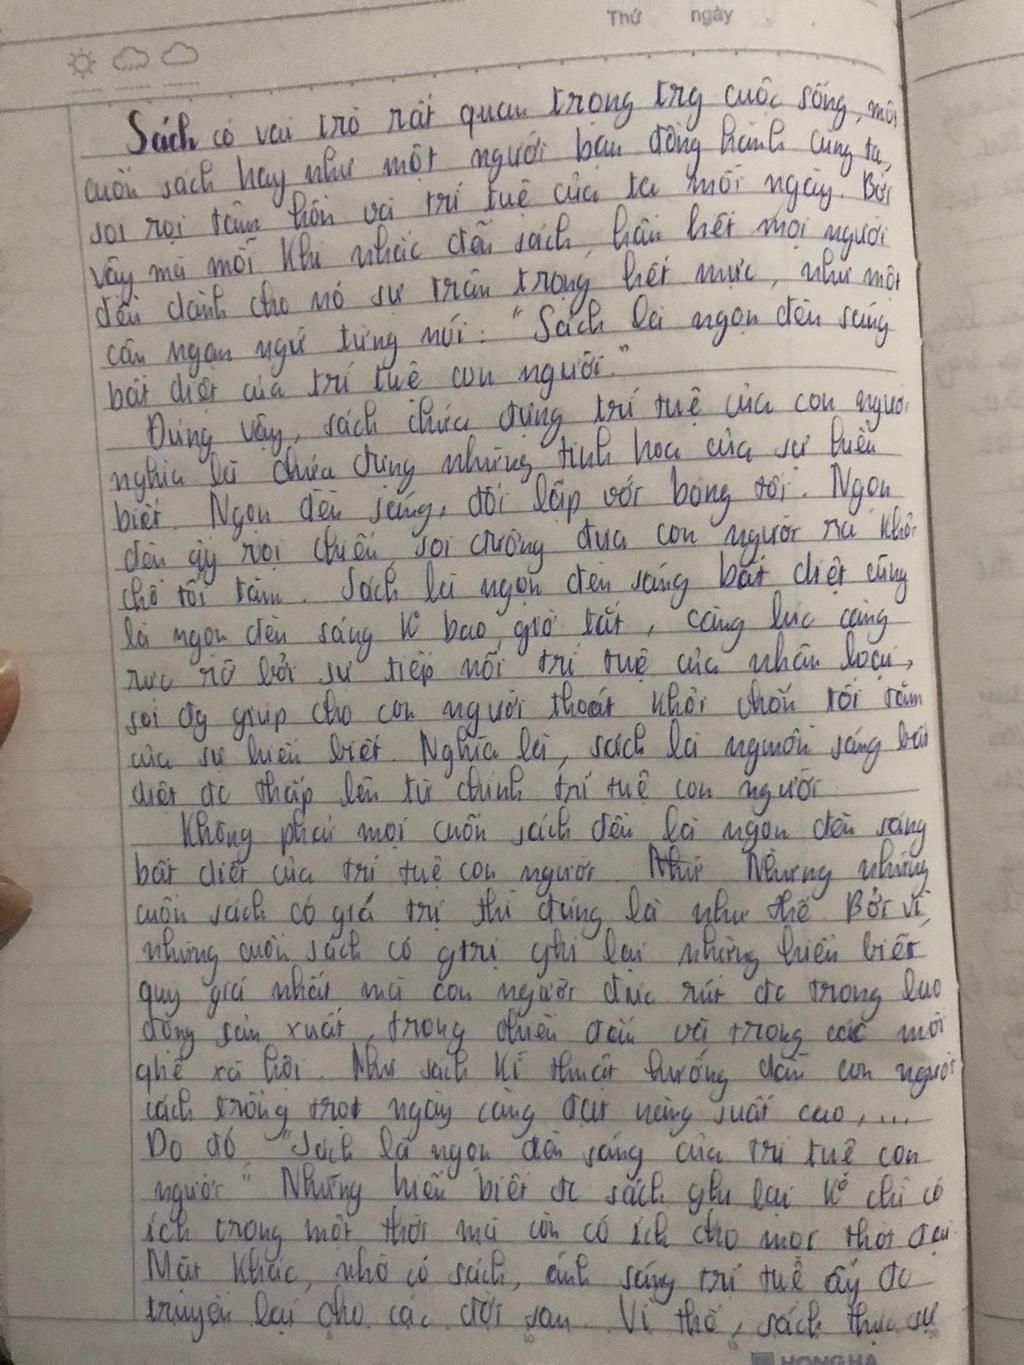 Thứ ngày
Sách có vai trò rất quan trọng trg cuộc sống, một
cuốn sách hay như một người bạn đồng hành cùng ta,
soi rọi tâm hồn và trí tuệ của ta mỗi ngày. Bởi
vậy mà mỗi khi nhắc đến sách, hầu hết mọi người
đều dành cho nó sự trân trọng hết mực, như một
câu ngạn ngữ từng nói: "Sách là ngọn đèn sáng
bất diệt của trí tuệ con người."
Đúng vậy, sách chứa đựng trí tuệ của con người
nghĩa là chứa đựng những tinh hoa của sự hiểu
biết. Ngọn đèn sáng, đối lập với bóng tối. Ngọn
đèn ấy rọi chiếu, soi đường đưa con người ra khỏi
chỗ tối tăm. Sách là ngọn đèn sáng bất diệt cũng
là ngọn đèn sáng k bao giờ tắt, càng lúc càng
rực rỡ bởi sự tiếp nối trí tuệ của nhân loại,
soi đg giúp cho con người thoát khỏi chốn tối tăm
của sự hiểu biết. Nghĩa là, sách là nguồn sáng bất
diệt đc thắp lên từ chính trí tuệ con người
Không phải mọi cuốn sách đều là ngọn đèn sáng
bất diệt của trí tuệ con người. Nhưng những
cuốn sách có giá trị thì đúng là như thế. Bởi vì,
những cuốn sách có gtrị ghi lại những hiểu biết
quý giá nhất mà con người đúc rút đc trong lao
động sản xuất, trong chiến đấu và trong các mối
qhệ xã hội. Như sách kĩ thuật hướng dẫn con người
cách trồng trọt ngày càng đạt năng suất cao,...
Do đó "Sách là ngọn đèn sáng của trí tuệ con
người" Những hiểu biết đc sách ghi lại k chỉ có
ích trong một thời mà còn có ích cho mọi thời đại
Mặt khác, nhờ có sách, ánh sáng trí tuệ ấy đc
truyền lại cho các đời sau. Vì thế, sách thực sự
HONG HA